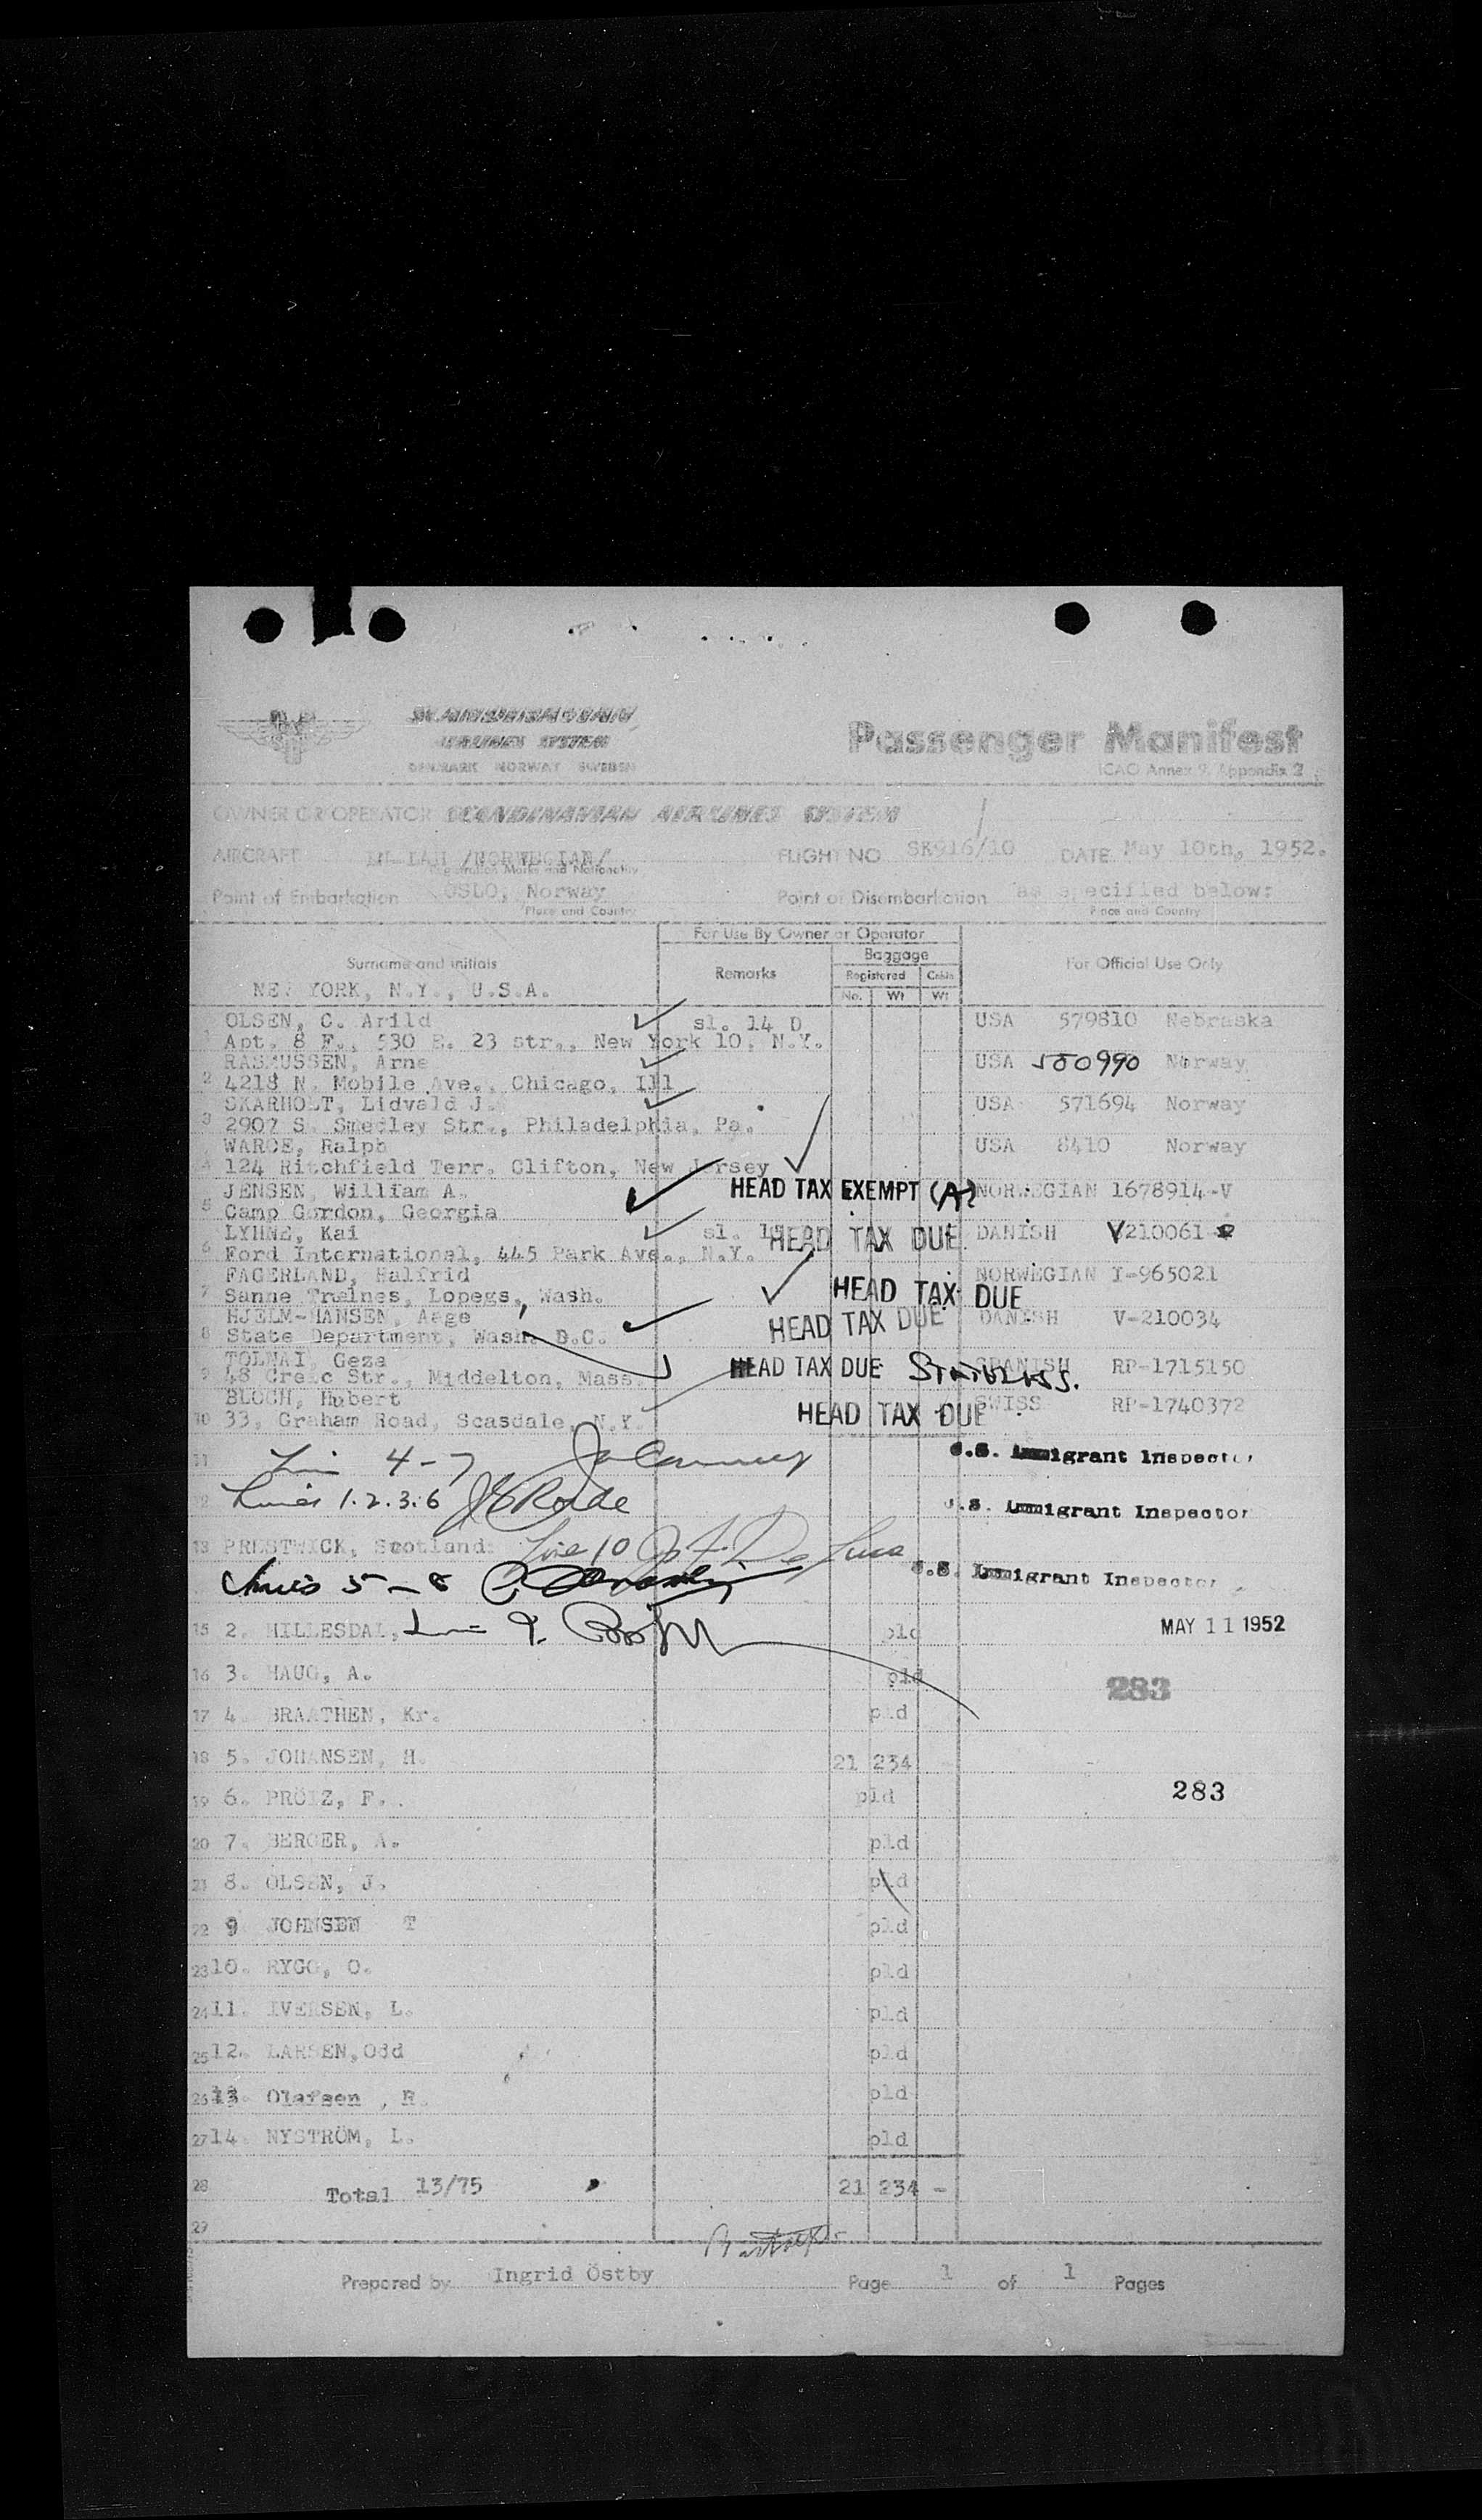 SCANDINAVIAN
AIRLINES SYSTEM
DENMARK NORWAY SWEDEN
Passenger Manifest
ICAO Annex 9, Appendix 2
OWNER OR OPERATOR SCANDINAVIAN AIRLINES SYSTEM
AIRCRAFT /NORWEGIAN/ FLIGHT NO SK916/10 DATE May 10th, 1952.
Registration Marks and Nationality
Point of Embarkation OSLO, Norway Point of Disembarkation as specified below:
Place and Country Place and Country
For Use By Owner or Operator
Surname and initials Remarks Baggage For Official Use Only
Registered Cabin
NEW YORK, N.Y., U.S.A. No. Wt Wt
OLSEN, C. Arild sl. 14 D USA 579810 Nebraska
1 Apt. 8 F., 530 E. 23 str., New York 10, N.Y.
RASMUSSEN, Arne USA 580990 Norway
2 4218 N. Mobile Ave., Chicago, Ill
SKARHOLT, Lidvald J. USA 571694 Norway
3 2907 S. Smedley Str., Philadelphia, Pa.
WAROE, Ralph USA 8410 Norway
4 124 Ritchfield Terr. Clifton, New Jersey
JENSEN, William A. HEAD TAX EXEMPT (A) NORWEGIAN 1678914-V
5 Camp Gordon, Georgia
LYHNE, Kai sl. HEAD TAX DUE DANISH V210061
6 Ford International, 445 Park Ave., N.Y.
FAGERLAND, Halfrid NORWEGIAN I-965021
7 Sanne Trælnes, Lopegs, Wash. HEAD TAX DUE
HJELM-HANSEN, Aage HEAD TAX DUE DANISH V-210034
8 State Department, Wash. D.C.
TOLNAI, Geza HEAD TAX DUE SPANISH Stateless. RP-1715150
9 48 Str., Middelton, Mass.
BLOCH, Hubert SWISS RP-1740372
10 33, Graham Road, Scasdale, N.Y. HEAD TAX DUE
11 4-7 U.S. Immigrant Inspector
12 Lines 1.2.3.6 U.S. Immigrant Inspector
13 PRESTWICK, Scotland: Line 10 J. F. De Luca
Lines 5-8 U.S. Immigrant Inspector
15 2. HILLESDAL, Line 9. pld MAY 11 1952
16 3. HAUG, A. pld 283
17 4. BRAATHEN, Kr. pld
18 5. JOHANSEN, H. 21 234 -
19 6. PRÖIZ, F. pld 283
20 7. BERGER, A. pld
21 8. OLSEN, J. pld
22 9 JOHNSEN T pld
23 10. RYGG, O. pld
24 11. IVERSEN, L. pld
25 12. LARSEN, Odd pld
26 13. Olafsen, R. pld
27 14. NYSTRÖM, L. pld
28 Total 13/75 21 234 -
29
Prepared by Ingrid Östby Page 1 of 1 Pages